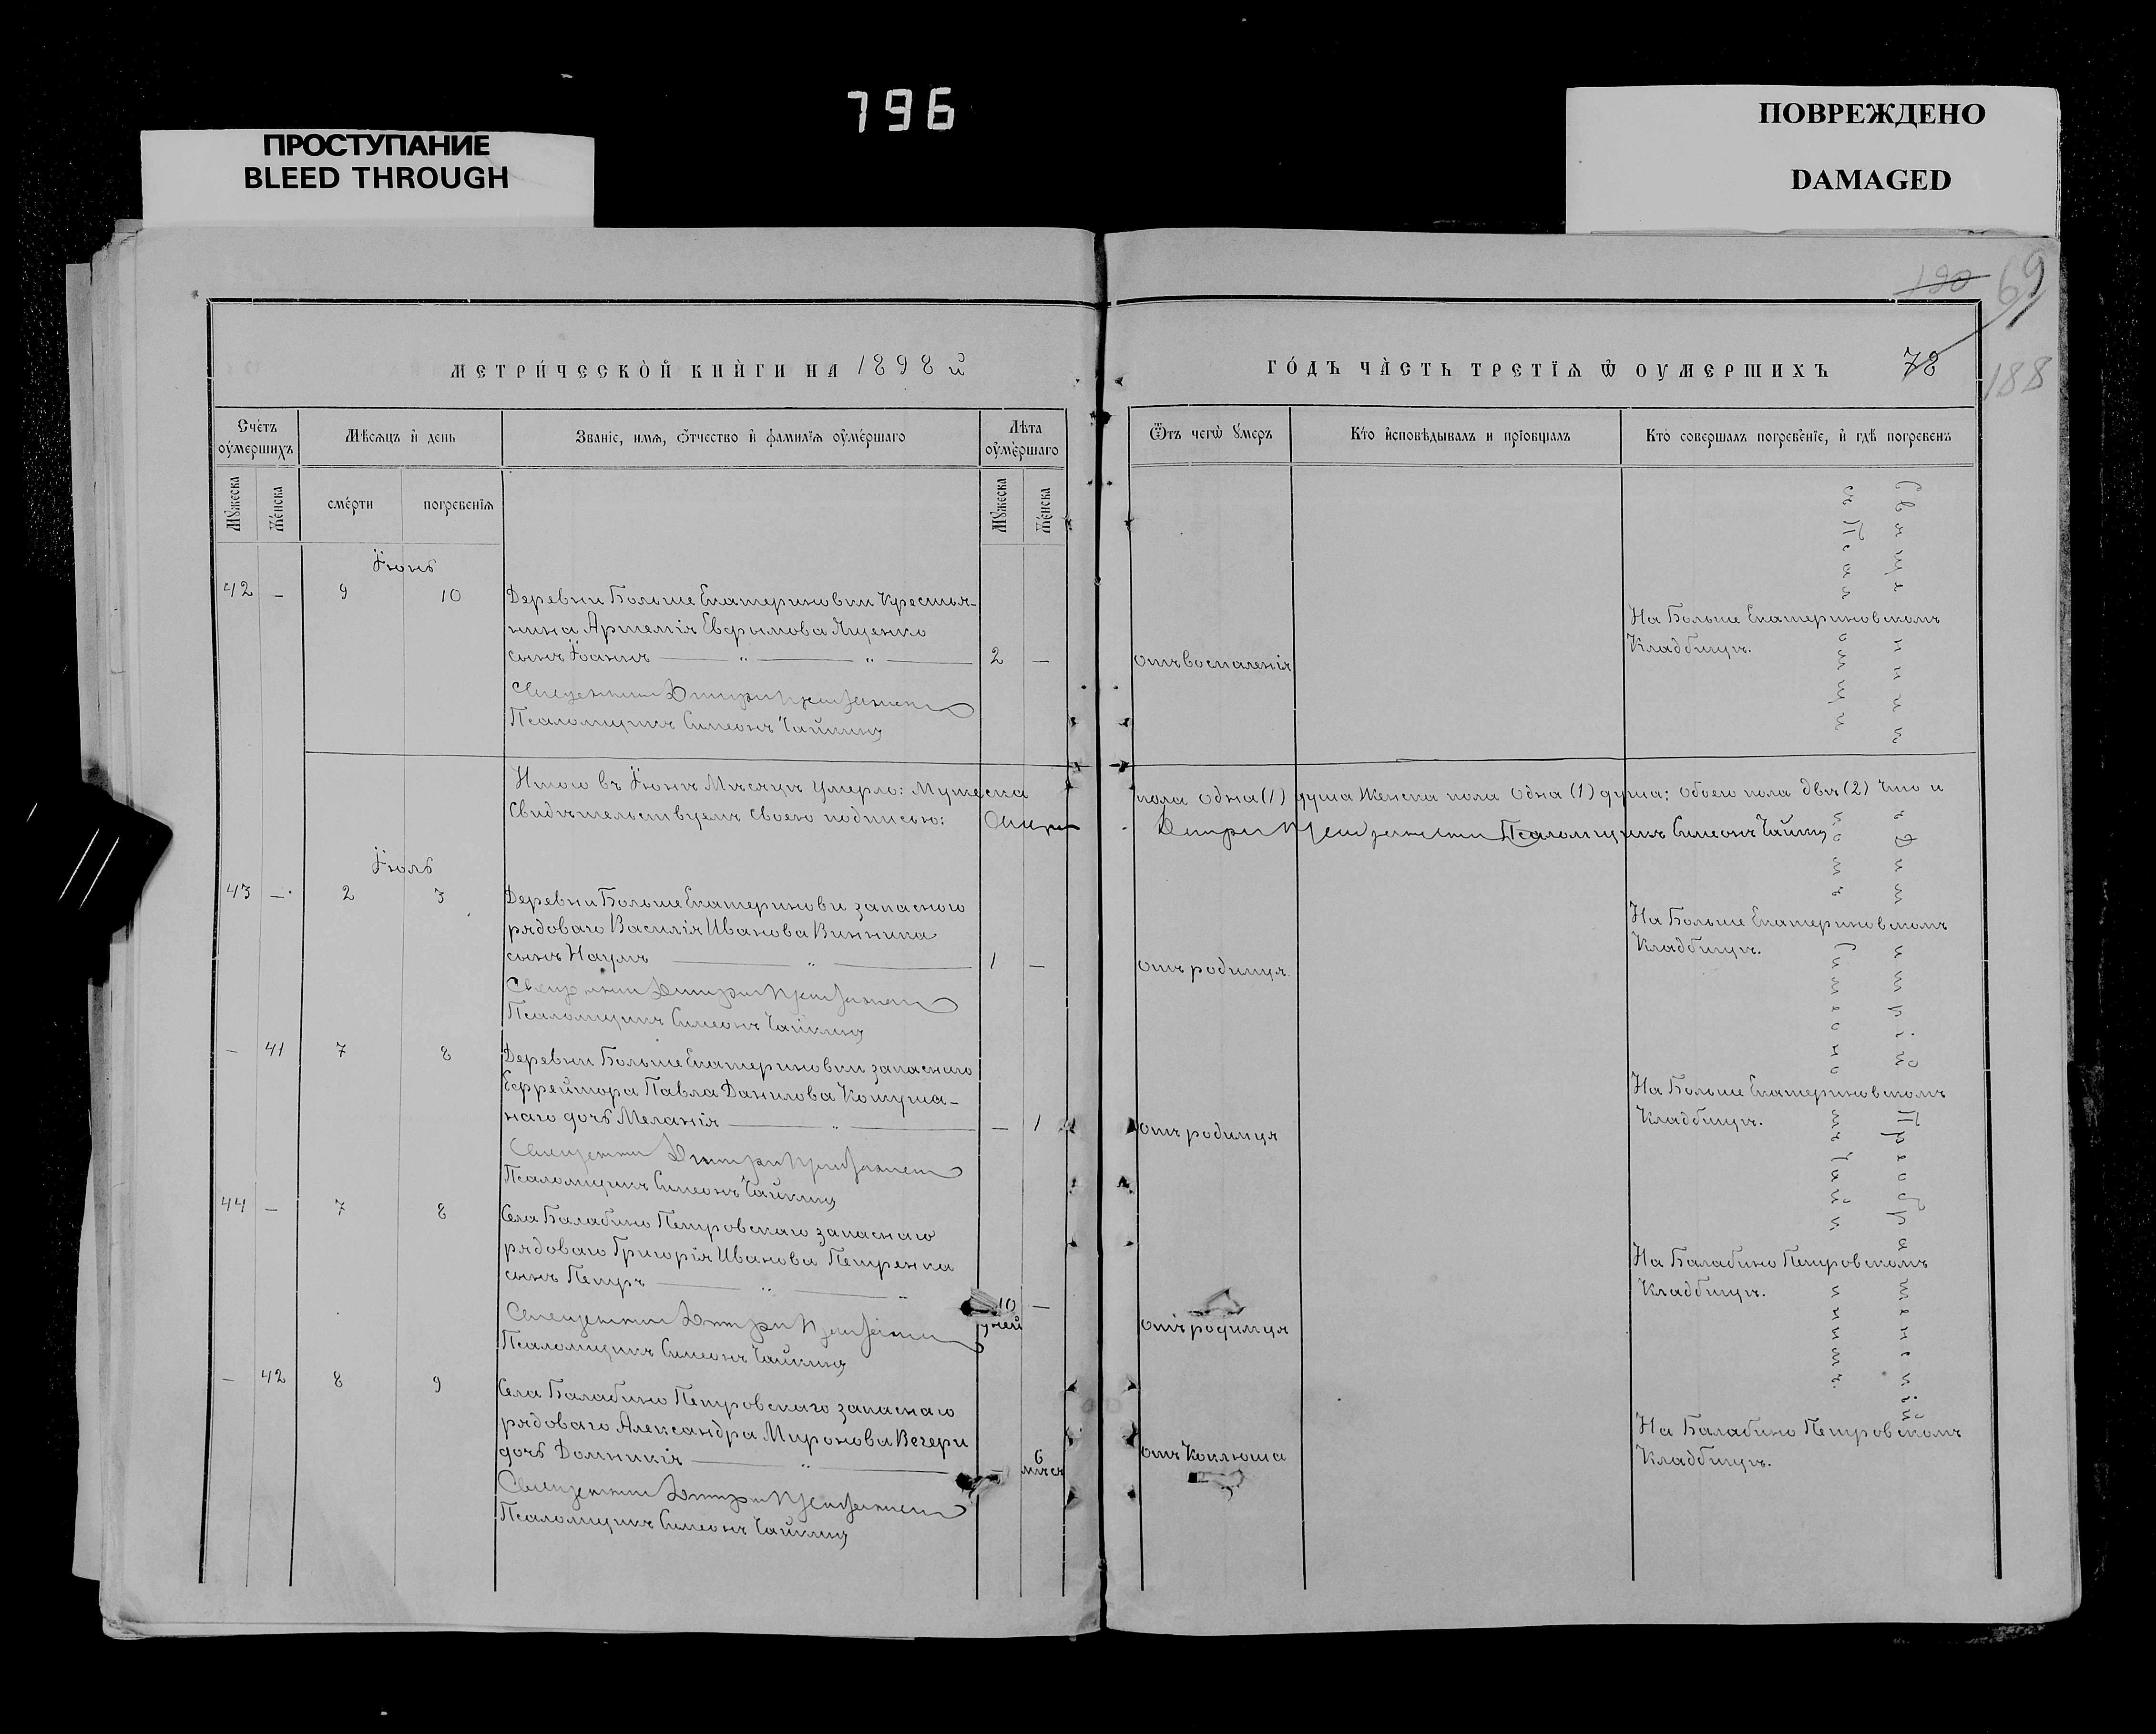 796
ПРОСТУПАНИЕ
BLEED THROUGH
ПОВРЕЖДЕНО
DAMAGED
190 69
188
МЕТРИ́ЧЕСКО̀Й КНЍГИ НА 1898 й
ГО́ДЪ ЧА̀СТЬ ТРЕТЇѦ Ѿ ОУМЕРШИХЪ 78
Счетъ оумершихъ
Мѣсяцъ и день
Званіе, имя, отчество и фамилія оумершаго
Лѣта оумершаго
Мужеска
Женска
смерти
погребенія
Мужеска
Женска
Отъ чего умеръ
Кто исповѣдывалъ и пріобщалъ
Кто совершалъ погребеніе, и гдѣ погребенъ
Іюнь
42 – 9 10 Деревни Больше Екатериновки Крестья-
нина Артемія Евфимова Ященко
сынъ Іоаннъ 2 – отъ воспаленія
На Больше Екатериновскомъ
Кладбищѣ.
Священникъ Дмитрій Преображенскій
Псаломщикъ Симеонъ Чайкинъ
Итого въ Іюнѣ Мѣсяцѣ умерло: Мужеска пола одна (1) душа Женска пола одна (1) душа; обоего пола двѣ (2) что и
Свидѣтельствуемъ своею подписью: Священникъ Дмитрій Преображенскій Псаломщикъ Симеонъ Чайкинъ
Іюль
43 – 2 3 Деревни Больше Екатериновки запасного
рядоваго Василія Иванова Винника
сынъ Наумъ 1 – отъ родимца
На Больше Екатериновскомъ
Кладбищѣ.
Священникъ Дмитрій Преображенскій
Псаломщикъ Симеонъ Чайкинъ
– 41 7 8 Деревни Больше Екатериновки запаснаго
Ефрейтора Павла Данилова Кошуша-
наго дочь Меланія – 1 отъ родимца
На Больше Екатериновскомъ
Кладбищѣ.
Священникъ Дмитрій Преображенскій
Псаломщикъ Симеонъ Чайкинъ
44 – 7 8 Села Балабино Петровскаго запаснаго
рядоваго Григорія Иванова Петренка
сынъ Петръ 10 дней – отъ родимца
На Балабино Петровскомъ
Кладбищѣ.
Священникъ Дмитрій Преображенскій
Псаломщикъ Симеонъ Чайкинъ
– 42 8 9 Села Балабино Петровскаго запаснаго
рядоваго Александра Миронова Вечери
дочь Домникія – 6 мѣся отъ Коклюша
На Балабино Петровскомъ
Кладбищѣ.
Священникъ Дмитрій Преображенскій
Псаломщикъ Симеонъ Чайкинъ
Священникъ Димитрій Преображенскій
съ Псаломщикомъ Симеономъ Чайкинымъ.